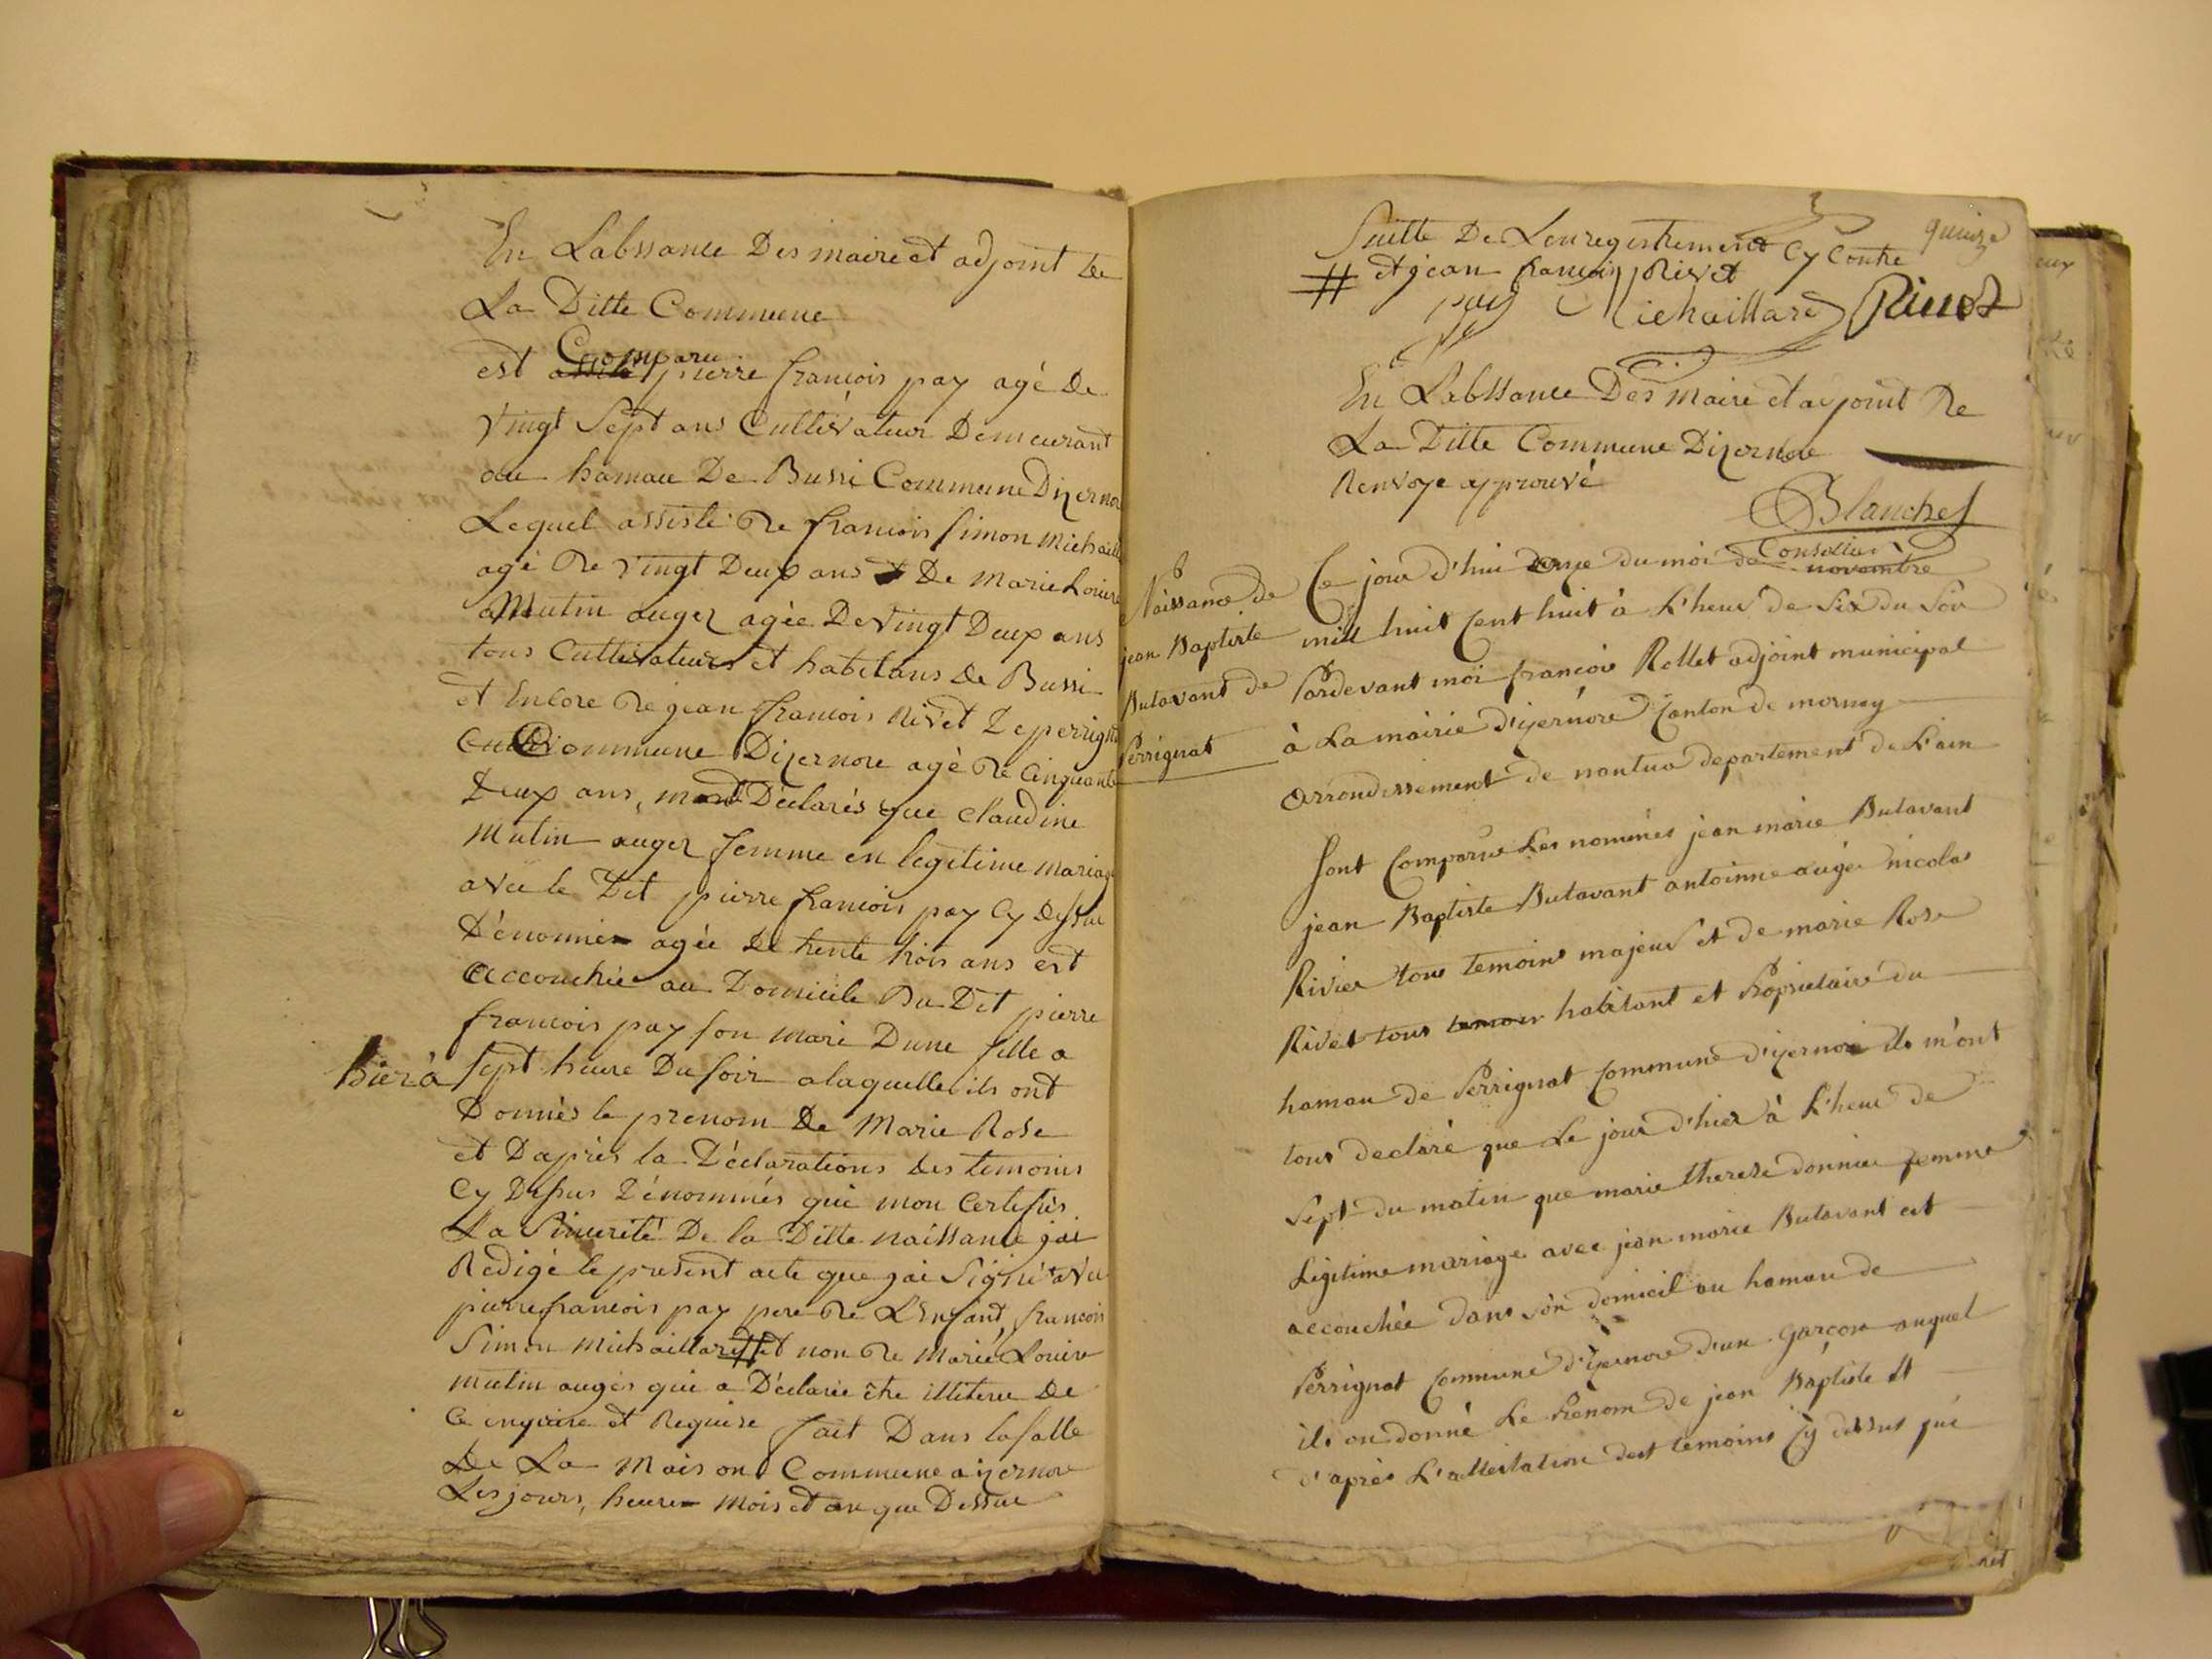 En Labssance Des maire et adjoint de
La Ditte Commune
Comparu
est assisté pierre francois pay agé De
Vingt Sept ans Cultivateur Demeurant
au hamau De Bussi Commune Dizernor
Lequel assisté de francois Simon Michaill
agé de Vingt Deux ans et De Marie Louise
Mutin auger agée De Vingt Deux ans
tous Cultivateurs et habitans de Bussi
et Encore de jean francois Rivet De perrign
Commune Dizernore agé de Cinquante
Deux ans, mont Déclarés que Claudine
Mutin auger femme en legitime mariage
avec le Dit pierre francois pay Cy dessue
Dénommée agée De trente trois ans est
accouchée au Domicile Du Dit pierre
francois pay son mari Dune fille a
hier à sept heure Du soir a laquelle ils ont
Donnés le prenom De Marie Rose
et Daprès la Déclarations des temoins
Cy Dessus Dénommés qui mon Certifiés
La Sincerité De la Ditte naissance jai
Redigé le present acte que jai Signé avec
pierre francois pay pere de L'Enfant, francois
Simon Michaillard # et non de Marie Louise
mutin auger qui a Déclarée être illiterée De
Ce enquise et Requise fait Dans la salle
De La Maison Commune a izernore
Les jours, heure Mois et an que Dessue
quinze
Suitte De Lenregistrement Cy Contre
# et jean francois Rivet
pay Michaillard Rivet
En Labssance Des Maire et adjoint De
La Ditte Commune Dizernore
Renvoye approuvé
Blanchet
Conseiller
Naissance de
jean Baptiste
Butavant de
Perrignat
Ce jour d'hui onze du moi de novembre
mill huit cent huit à L'heur de Six du Soir
Pardevant moi francois Rollet adjoint municipal
à La mairie d'izernore Canton de mornay
arrondissement de nantua departement de L'ain
Sont Comparus Les nommés jean marie Butavant
jean Baptiste Butavant antoinne auger nicolas
Rivier tous temoins majeur et de marie Rose
Rivet tous temoin habitant et Propriétaire du
hamau de Perrignat Commune d'izernore ils m'ont
tous declaré que Le jour d'hier à L'heur de
Sept du matin que marie therese donnier femme
Legitime mariage avec jean marie Butavant est
accouchée dans son domicil au hamau de
Perrignat Commune d'izernore d'un Garçon auquel
ils on donné Le Prénom de jean Baptiste Et
d'après L'attestation dest temoins Cy dessus qui